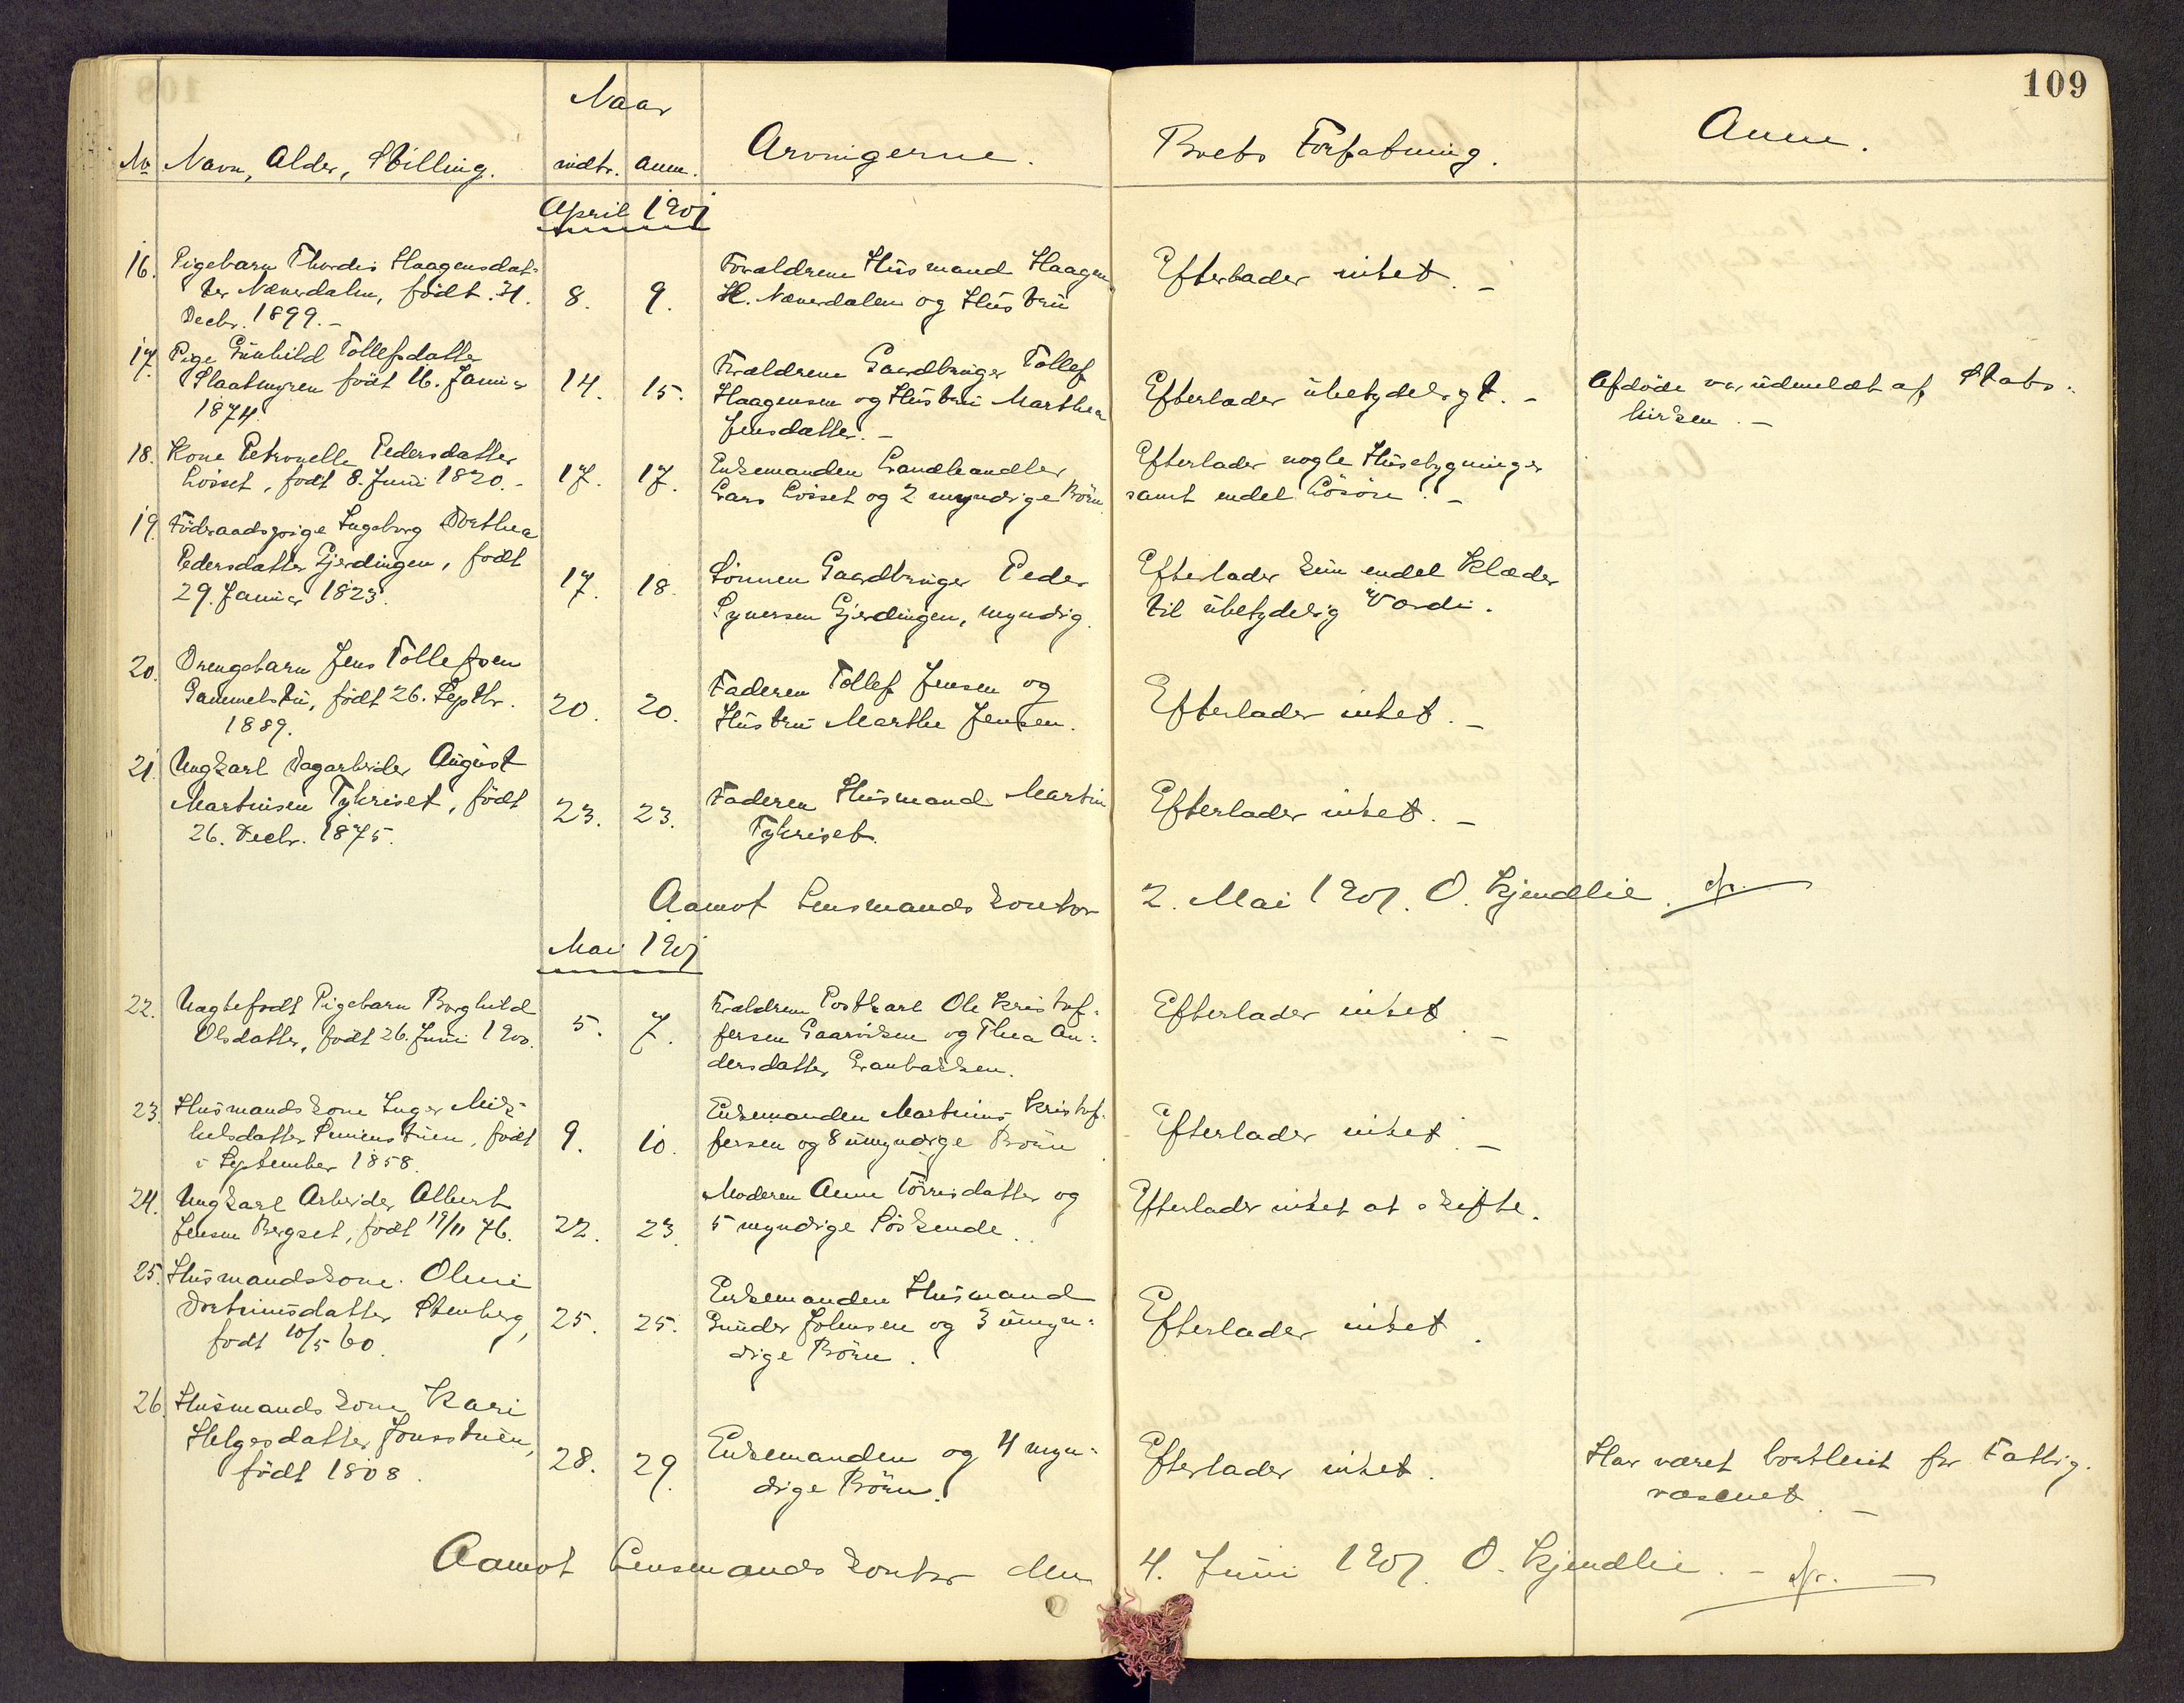 109
Naar
No Navn, Alder, Stilling. indtr. anm. Arvingerne. Boets Forfatning. Anm.
April 1901
16. Pigebarn Thordis Haagensdat-
ter Næverdalen, födt 31.
Decbr. 1899.-
8. 9.
Forældrene Husmand Haagen
H. Næverdalen og Hustru
Efterlader intet.-
17. Pige Gunhild Tollefsdatter
Slaatmyren födt 16. Januar
1874.
14. 15.
Forældrene Gaardbruger Tollef
Haagensen og Hustru Marthea
Jensdatter.-
Efterlader übetydeligt.-
Afdöde var üdmeldt af Stats-
kirken.-
18. Kone Petronelle Pedersdatter
Lösset, födt 8. Juni 1820.-
17. 17.
Enkemanden Landhandler
Lars Lösset og 2 myndige Börn
Efterlader nogle Husebygninger
samt endel Lösöre.-
19. Föderaadspige Ingeborg Dorthea
Pedersdatter Gjerdingen, födt
29. Januar 1823.
17. 18.
Sönnen Gaardbruger Peder
Synersen Gjerdingen, myndig.
Efterlader kun endel Klæder
til übetydelig Værdi.
20. Drengebarn Jens Tollefsen
Gammelstu, födt 26. Septbr.
1889.
20. 20.
Faderen Tollef Jensen og
Hustru Marthe Jensen.
Efterlader intet.-
21. Ungkarl Dagarbeider August
Martinsen Tyriset, födt
26. Decbr. 1875.
23. 23.
Faderen Husmand Martin
Tyriset.
Efterlader intet.-
Aamot Lensmandskontor 2. Mai 1901. O. Kjendlie.
Mai 1901
22. Uægtefödt Pigebarn Borghild
Olsdatter, födt 26. Juni 1900.
5. 7.
Forældrene Postkarl Ole Kristof-
fersen Gaarviken og Thea An-
dersdatter Granbakken.
Efterlader intet.-
23. Husmandskone Inger Mik-
kelsdatter, födt
i September 1858.
9. 10.
Enkemanden Martinus Kristof-
fersen og 8 umyndige Börn.
Efterlader intet.-
24. Ungkarl Arbeider Albert
Jensen Bergset, födt 19/11 76.
22. 23.
Moderen Anne Törrisdatter og
5 myndige Söskende.
Efterlader intet at skifte.
25. Husmandskone Oline
Dortinusdatter Stenberg,
födt 10/5 60.
25. 25.
Enkemanden Husmand
Gunder Johnsen og 3 umyn-
dige Börn.
Efterlader intet.
26. Husmandskone Kari
Helgesdatter Jonsstuen,
födt 1808.
28. 29.
Enkemanden og 4 myn-
dige Börn.
Efterlader intet.
Har været bortleiet for Fattig-
væsenet.-
Aamot Lensmandskontor den 4. Juni 1901. O. Kjendlie.-